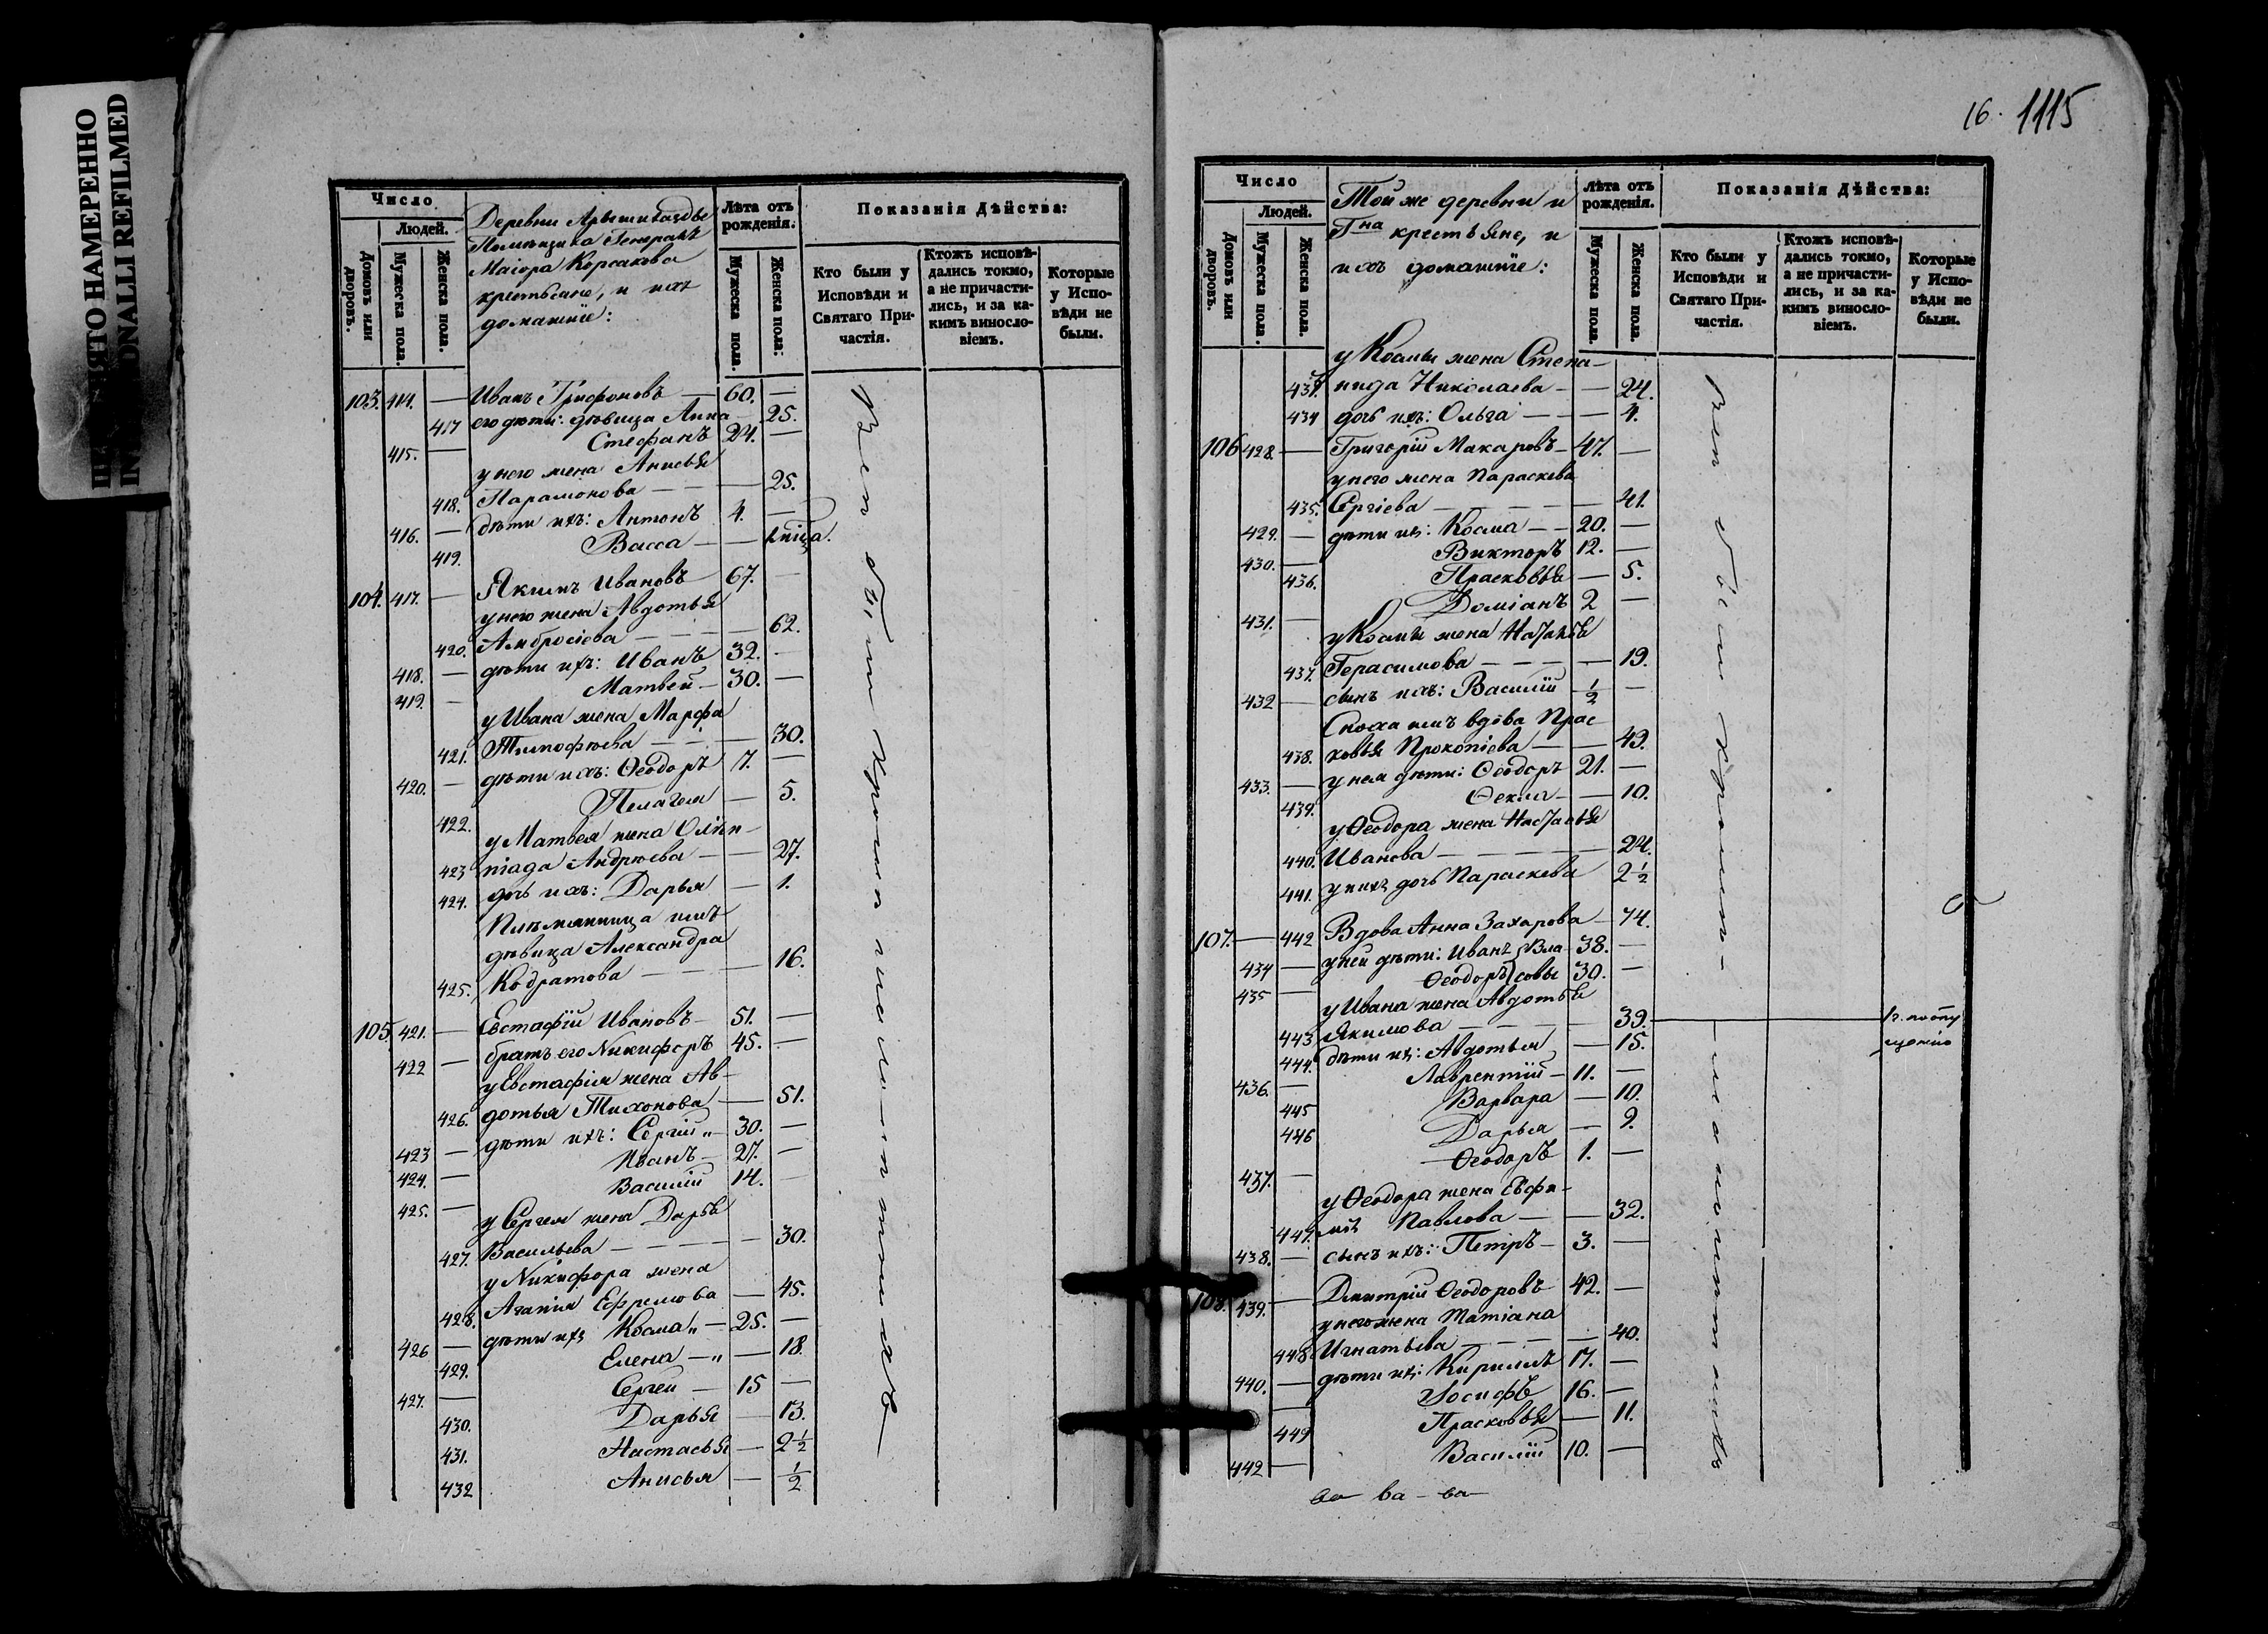 ЯТО НАМЕРЕННО
NALLI REFILMED
Число
Людей.
Домовъ или дворовъ.
Мужеска пола.
Женска пола.
Деревни
Помѣщика Генералъ
Маіора Корсакова
крестьяне, и ихъ
домашніе:
Лѣта отъ рожденія.
Мужеска пола.
Женска пола:
Показанія Дѣйства:
Кто были у Исповѣди и Святаго Причастія.
Ктожъ исповѣдались токмо, а не причастились, и за какимъ винословіемъ.
Которые у Исповѣди не были.
103. 414. — Иванъ Трифоновъ — 60. —
417 его дѣти: дѣвица Анна 25.
415. — Стефанъ 24. —
у него жена Анисья
418. Парамонова — — 25.
416. — дѣти ихъ: Антонъ 4. —
419. Васса — —
104. 417. — Якимъ Ивановъ 67. —
у него жена Авдотья
420. Амбросіева — — — 62.
418. — дѣти ихъ: Иванъ 32. —
419. — Матвей — 30. —
у Ивана жена Марфа
421. Тимофѣева — — — 30.
420. — дѣти ихъ: Ѳеодоръ 7. —
422. Пелагея — 5.
у Матвея жена Олим-
423 піада Андрѣева — — 27.
424. дочь ихъ: Дарья — 1.
Племянница имъ
дѣвица Александра
425. Кодратова — — — 16.
105. 421. — Евстафій Ивановъ — 51. —
422 — братъ его Никифоръ 45. —
у Евстафія жена Ав-
426. дотья Тихонова — 51.
423 — дѣти ихъ: Сергій „ — 30. —
424. — Иванъ — 27. —
425. — Василій 14. —
у Сергея жена Дарья
427. Васильева — — — — 30.
у Никифора жена
428. Агапія Ефремова — 45.
426 — дѣти ихъ Косма „ — 25. —
429. Елена — „ — 18.
427. — Сергей — 15 —
430. Дарья — 13.
431. Настасья — 2½
432 Анисья — ½
Всѣ были
16. 1115
Число
Людей.
Домовъ или дворовъ.
Мужеска пола.
Женска пола.
Той же деревни и
Гна крестьяне, и
ихъ домашніе:
Лѣта отъ рожденія.
Мужеска пола.
Женска пола.
Показанія Дѣйства:
Кто были у Исповѣди и Святаго Причастія.
Ктожъ исповѣдались токмо, а не причастились, и за какимъ винословіемъ.
Которые у Исповѣди не были.
у Космы жена Степа-
433. нида Николаева — — 24.
434 дочь ихъ: Ольга — — — 4.
106 428. — Григорій Макаровъ — 47. —
у него жена Параскева
435. Сергіева — — — — 41.
429. — дѣти ихъ: Косма — — 20. —
430. — Викторъ 12. —
436. Прасковья — 5.
431. — Доміанъ 2 —
у Космы жена Наталья
437. Герасимова — — — — 19.
432 — сынъ ихъ: Василій — ½ —
Сноха имъ вдова Прас-
438. ковья Прокопіева — — 49.
433. — у нея дѣти: Ѳеодоръ 21. —
439. Ѳекла — — 10.
у Ѳеодора жена Настасья
440. Иванова — — — — 24.
441. у нихъ дочь Параскева 2½
107. — 442 Вдова Анна Захарова — 74.
434 — у ней дѣти: Иванъ } Вла- 38. —
435 — Ѳеодоръ } совы 30. —
у Ивана жена Авдотья
443 Якимова — — — — 39.
444. дѣти ихъ: Авдотья — 15.
436. — Лаврентій — 11. —
445 Варвара — 10.
446 Дарья — 9.
437. — Ѳеодоръ 1. —
у Ѳеодора жена Евфи-
447. Павлова — — 32.
438. — сынъ ихъ: Петръ — 3. —
108. 439. — Дмитрій Ѳеодоровъ 42. —
у него жена Татіана
448 Игнатьева — — — — 40.
440. — дѣти ихъ: Кириллъ 17. —
— Іосифъ 16. —
449 Прасковья — 11.
442 — Василій 10. —
Всѣ были
ва — ва — ва